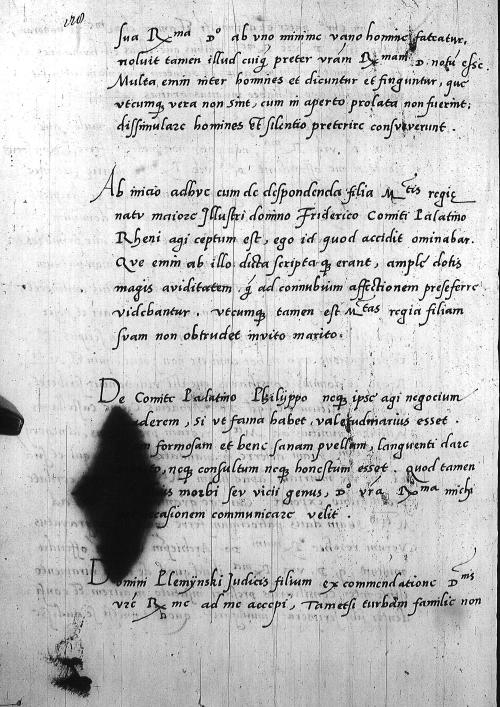 sua R^ma D^o ab vno minime vano homine fateatur,
noluit tamen illud cuiq̃ preter vrãm R^mam D. notũ esse.
Multa enim inter homines et dicuntur et finguntur, que
vtcumq; vera non sint, cum in aperto prolata non fuerint;
dissimulare homines et silentio preterire consueverunt.
Ab inicio adhvc cum de despondenda filia M^tis regię
natv maiore Illustri domino Friderico Comiti Palatino
Rheni agi ceptum est, ego id quod accidit ominabar.
Que enim ab illo dicta scripta q; erant, amplę dotis
magis aviditatem, q̃ ad connubium affectionem preseferre
videbantur, vtcumq; tamen est M^tas regia filiam
svam non obtrudet invito marito.
De Comite Palatino Philippo neq; ipse agi negocium
derem, si vt fama habet, valetudinarius esset.
formosam et bene sanam pvellam, languenti dare
neq; consultum neq; honestum esset. Quod tamen
morbi sev vicii genus, D^o vrã R^ma michi
casionem communicare velit.
Domini Plemÿnski Judicis filium ex commendatione D^nis
vrẽ R^me ad me accepi, Tametsi turbam familię non